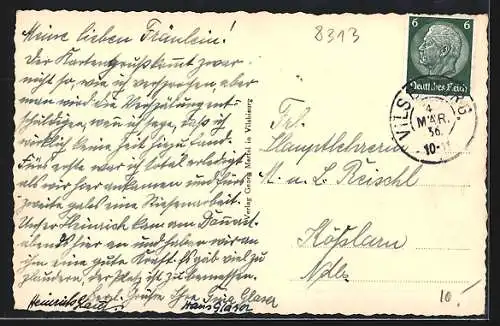 Meine lieben Fräulein!
Der Kartengruß kommt zwar
nicht so, wie ich versprochen aber
man wird die Verspätung ent-
schuldigen, wenn ich sage, daß ich
wirklich keine Zeit hiezu fand.
Fürs erste war ich total erledigt
als wir hier ankamen und fürs
zweite gabs eine Riesenarbeit.
Unser Heinrich kam am Donnerst-
abend hier an und haben wir an
ihm eine gute Kraft. Es gäb viel zu
plaudern, der Platz ist zu bemessen.
Herzl. Grüße Ihre Glaser
Heinrich Glaser Hans Glaser
Verlag Georg Mertel in Vilsbiburg
8313
6 6
Deutsches Reich
VILSBIBURG
4
MÄR.
36
10-11
Frl.
Hauptlehrerin
M. u. L. Reischl
Kößlarn
Ndb.
10.-